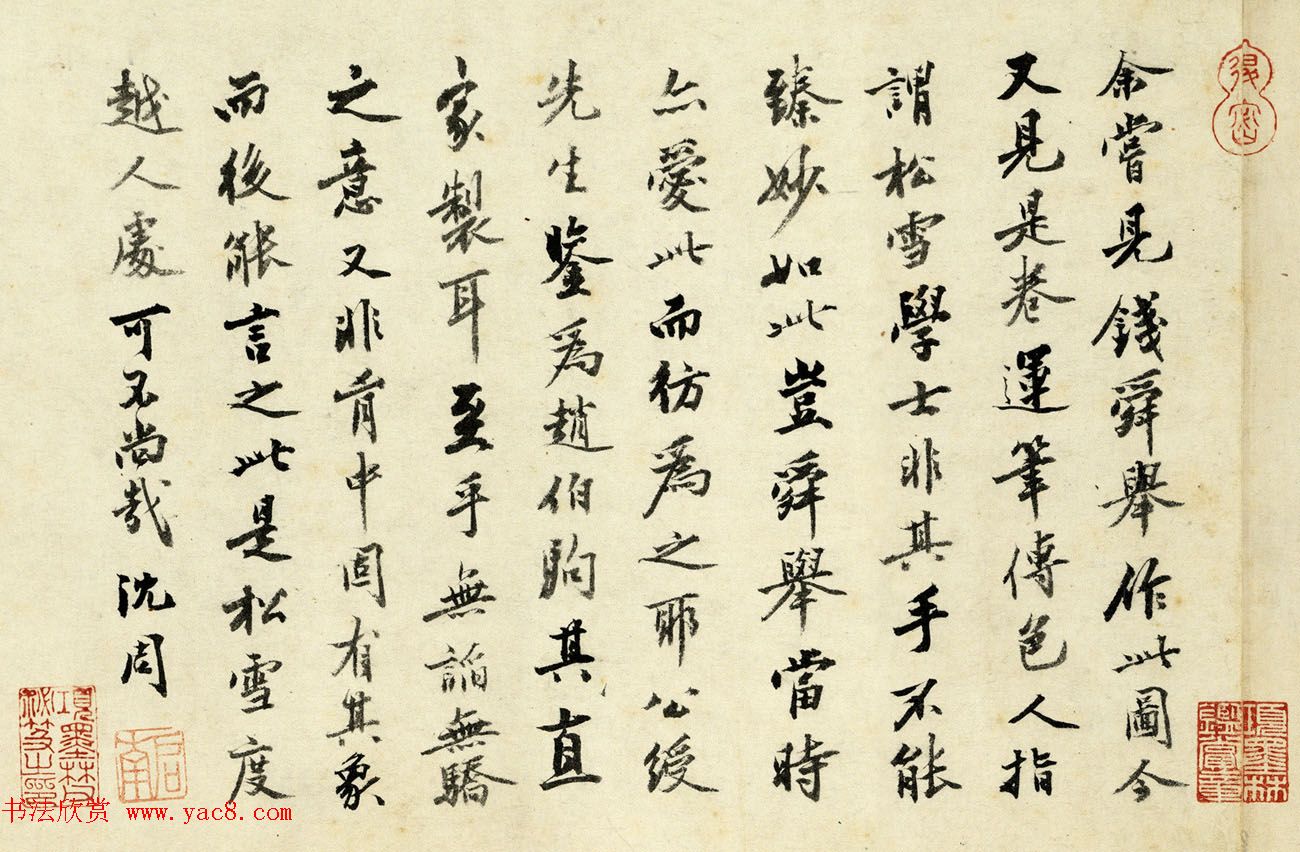 余嘗見錢舜舉作此圖今
又見是卷運筆傅色人指
謂松雪學士非其手不能
臻妙如此豈舜舉當時
亦愛此而彷為之耶公綬
先生鑒為趙伯駒其直
家製耳至乎無諂無驕
之意又非胸中固有其象
而後能言之此是松雪度
越人處可不尚哉沈周
啟南
項墨林
书法欣赏 www.yac8.com